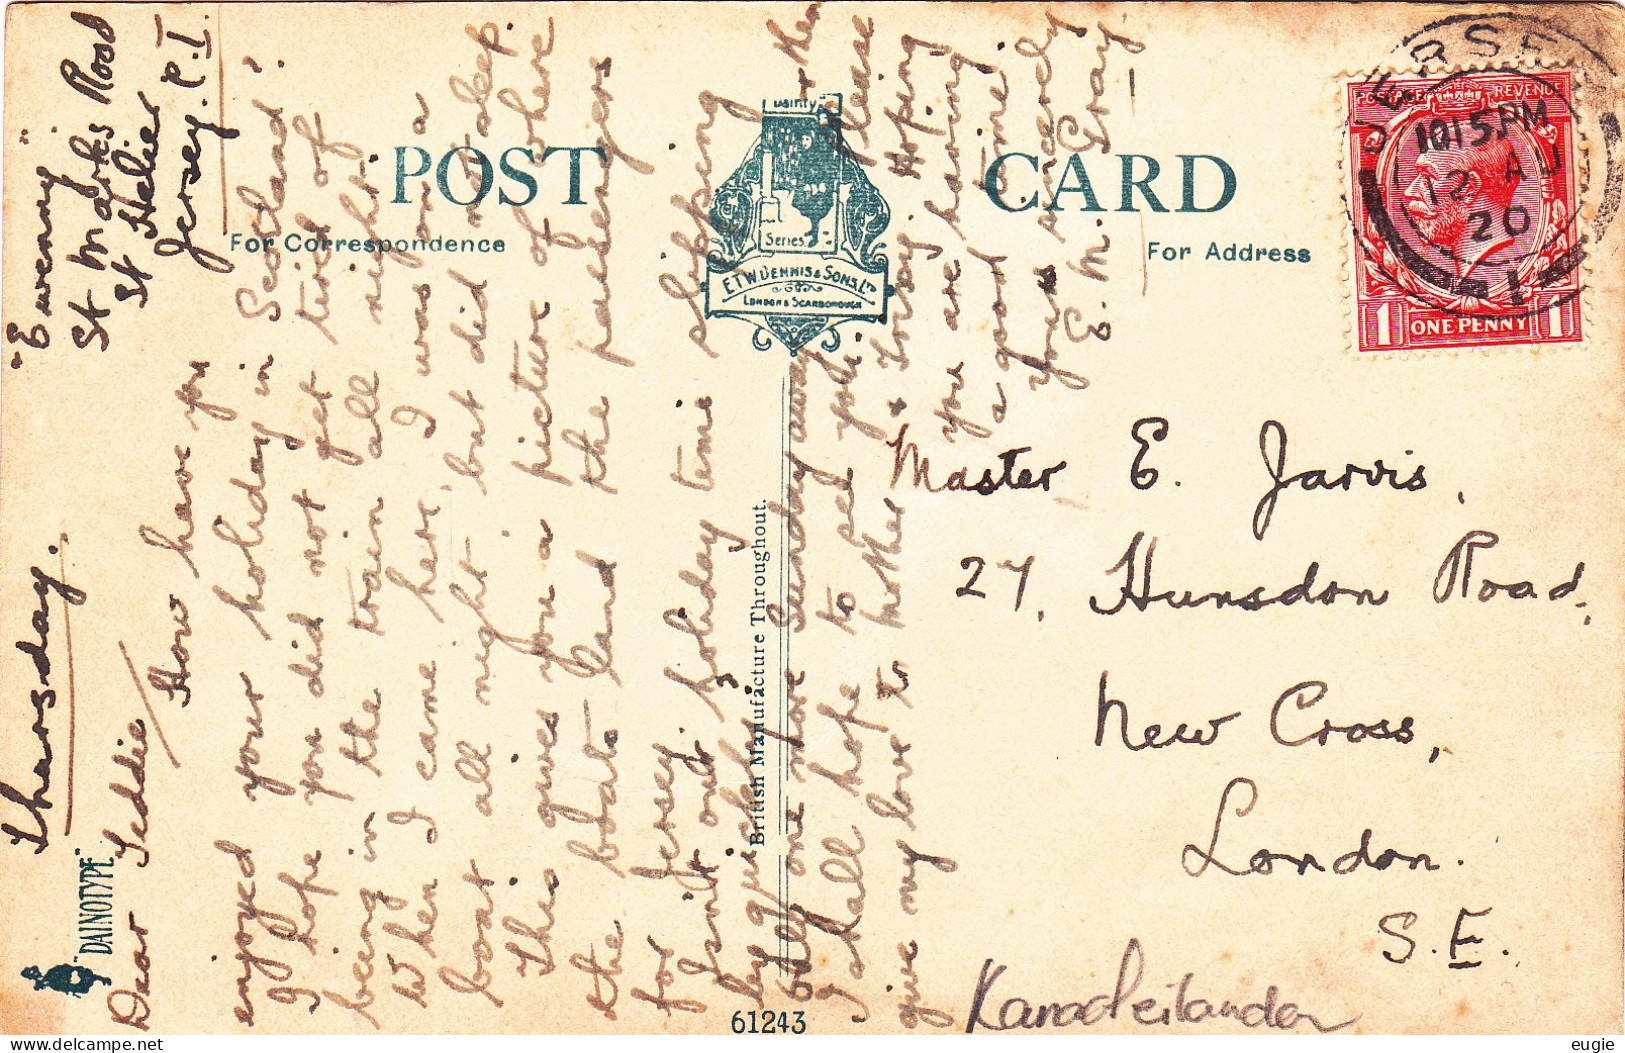 "Ewenny"
St Marks Road
St Helier
Jersey. C.I
Thursday.
Dear Teddie
How have you
enjoyed your holiday in Scotland?
I hope you did not get tired of
being in the train all right.
When I came here, I was on a
boat all night but did not sleep.
This gives you a picture of where
the boats land the passengers
for Jersey.
Isn't our holiday time slipping
by quickly
Only one more Sunday away then
I shall hope to see you. Please
give my love to Mother & Torsy Hoping
you are having
a good time
Yours sincerely
E. M. Gray.
POST CARD
For Correspondence
For Address
Dainty
Series
E.T.W. DENNIS & SONS, LTD
LONDON & SCARBOROUGH
British Manufacture Throughout.
"DAINOTYPE"
61243
JERSEY
10 15 PM
12 AU
20
1
POSTAGE REVENUE
1 ONE PENNY 1
Master E. Jarvis,
27, Hunsdon Road,
New Cross,
London.
S.E.
Kanaaleilanden
eugie